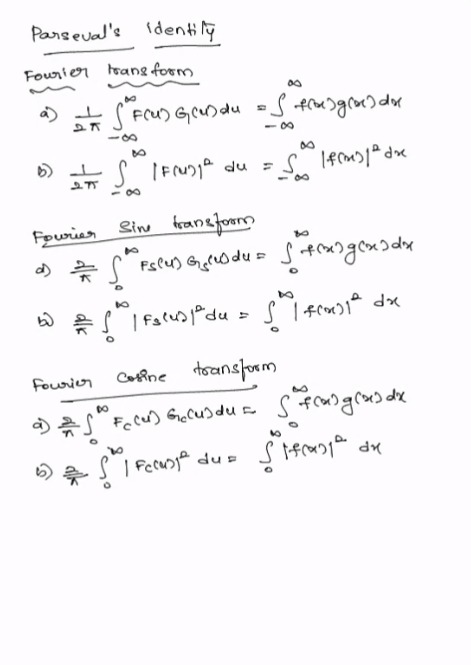 Parseval's Identity
Fourier transform
a) 1/2π ∫_{-∞}^{∞} F(u) G(u) du = ∫_{-∞}^{∞} f(x) g(x) dx
b) 1/2π ∫_{-∞}^{∞} |F(u)|² du = ∫_{-∞}^{∞} |f(x)|² dx
Fourier Sine transform
a) 2/π ∫_0^∞ Fs(u) Gs(u) du = ∫_0^∞ f(x) g(x) dx
b) 2/π ∫_0^∞ |Fs(u)|² du = ∫_0^∞ |f(x)|² dx
Fourier Cosine transform
a) 2/π ∫_0^∞ Fc(u) Gc(u) du = ∫_0^∞ f(x) g(x) dx
b) 2/π ∫_0^∞ |Fc(u)|² du = ∫_0^∞ |f(x)|² dx